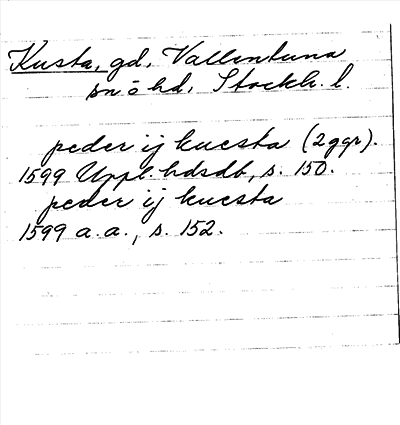 Kusta, gd, Vallentuna
sn o hd, Stockh. l.
peder ij kuesta (2 ggr).
1599 Uppl hdsdb, s. 150.
peder ij kuesta
1599 a.a., s. 152.